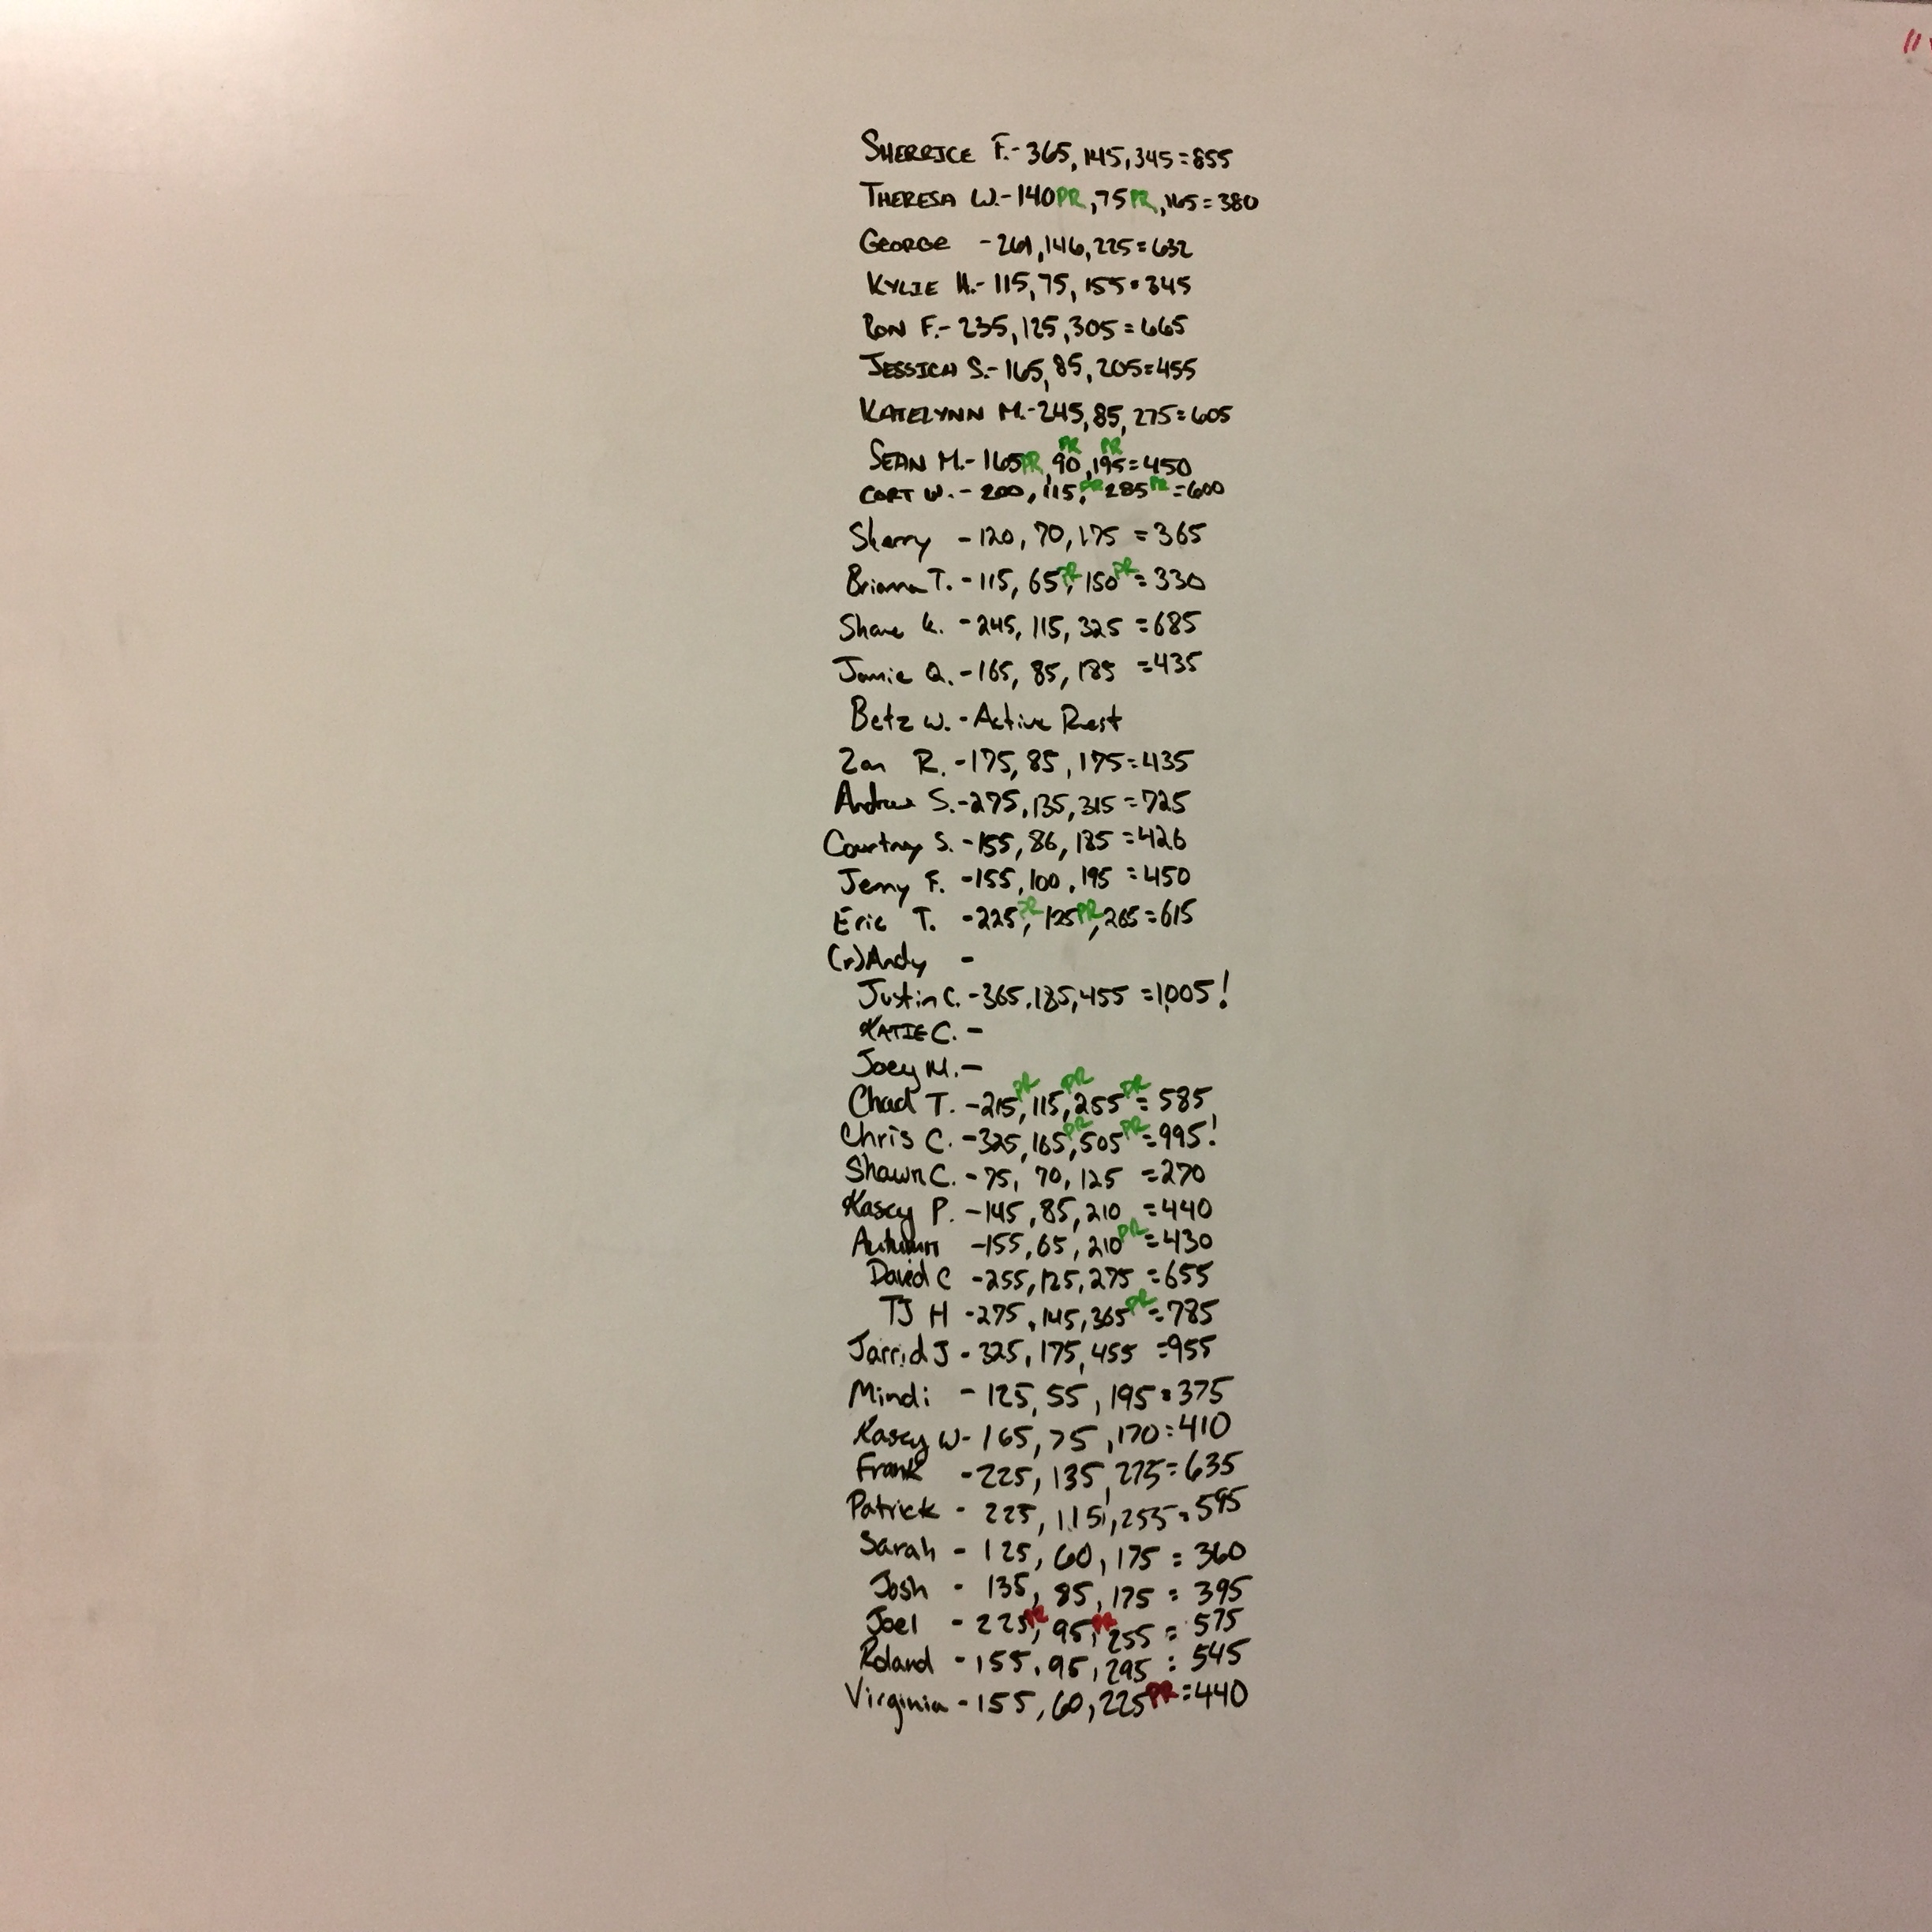 SHERRICE F.-365,145,345=855
THERESA W.-140PR,75PR,165=380
GEORGE -261,146,225=632
KYLIE H.-115,75,155=345
RON F.-235,125,305=665
JESSICA S.-165,85,205=455
KATELYNN M.-245,85,275=605
SEAN M.-165PR,90PR,195PR=450
CORT W.-200,115PR,285PR=600
Sherry -120,70,175=365
Brianna T.-115,65PR,150PR=330
Shane K.-245,115,325=685
Jamie Q.-165,85,185=435
Betz W.-Active Rest
Zan R.-175,85,175=435
Andrew S.-275,135,315=725
Courtney S.-155,86,185=426
Jenny F.-155,100,195=450
Eric T.-225PR,125PR,265=615
(r)Andy -
Justin C.-365,185,455=1,005!
KATIE C.-
Joey M.-
Chad T.-215PR,115PR,255PR=585
Chris C.-325,165PR,505PR=995!
Shawn C.-75,70,125=270
Kasey P.-145,85,210=440
Autumn -155,65,210PR=430
David C -255,125,275=655
TJ H -275,145,365PR=785
Jarrid J -325,175,455=955
Mindi -125,55,195=375
Kasey W-165,75,170=410
Frank -225,135,275=635
Patrick -225,115,255=595
Sarah -125,60,175=360
Josh -135,85,175=395
Joel -225PR,95PR,255=575
Roland -155,95,295=545
Virginia -155,60,225PR=440